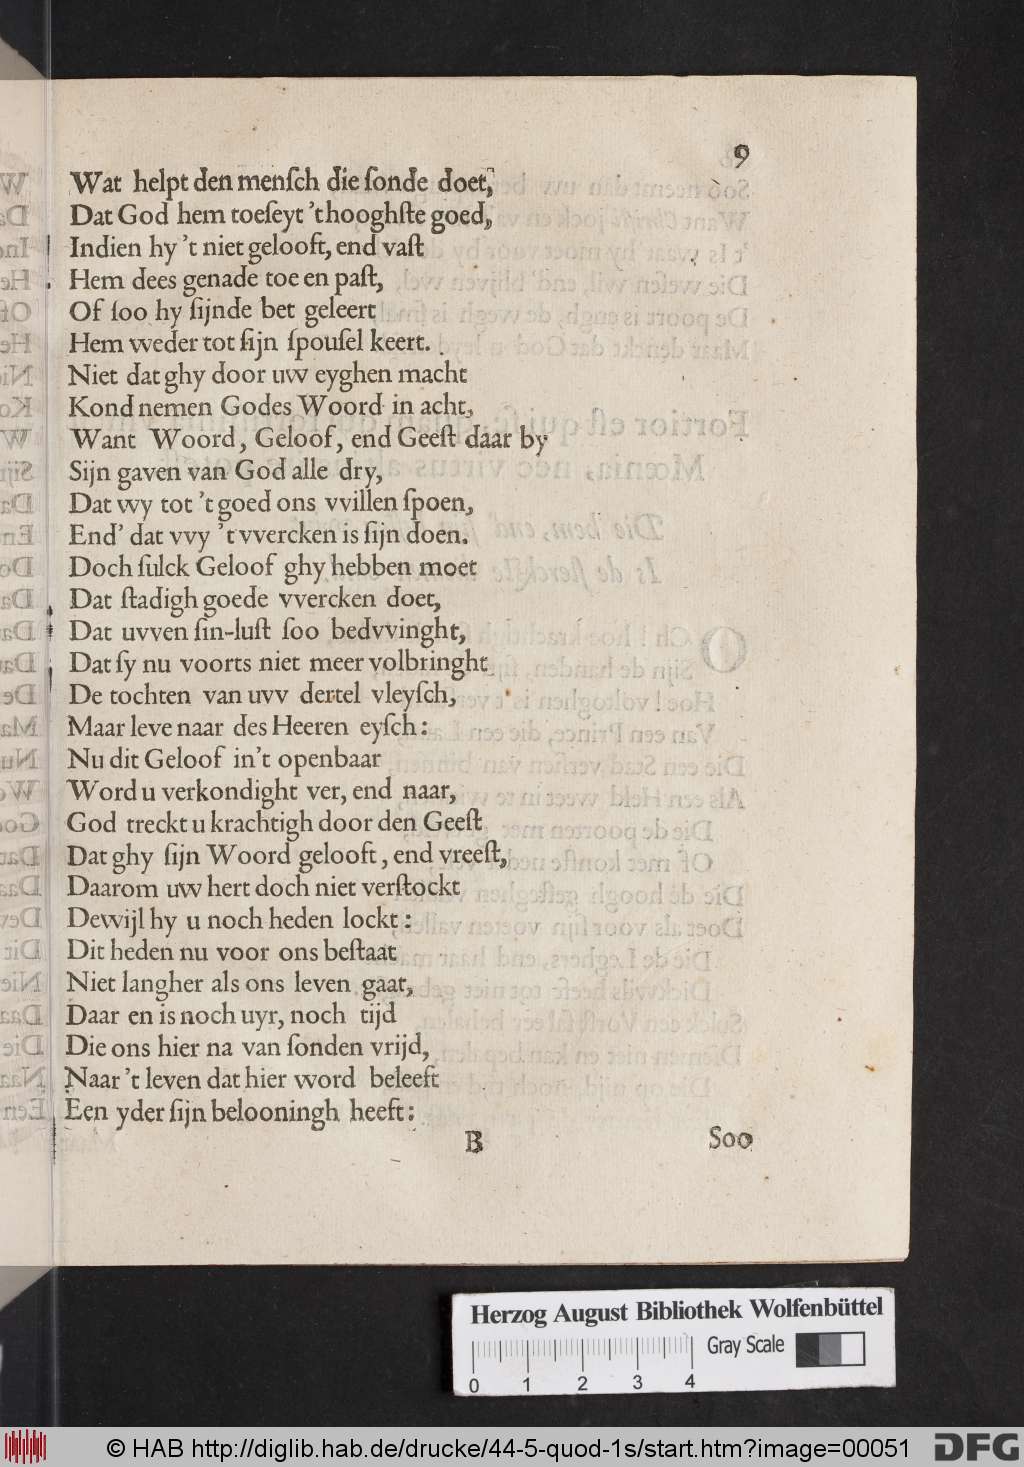 9
Wat helpt den menſch die ſonde doet,
Dat God hem toeſeyt 't hooghſte goed,
Indien hy 't niet gelooft, end vaſt
Hem dees genade toe en paſt,
Of ſoo hy ſijnde bet geleert
Hem weder tot ſijn ſpouſel keert.
Niet dat ghy door uw eyghen macht
Kond nemen Godes Woord in acht,
Want Woord, Geloof, end Geeſt daar by
Sijn gaven van God alle dry,
Dat wy tot 't goed ons vvillen ſpoen,
End' dat vvy 't vvercken is ſijn doen.
Doch ſulck Geloof ghy hebben moet
Dat ſtadigh goede vvercken doet,
Dat uvven ſin-luſt ſoo bedvvinght,
Dat ſy nu voorts niet meer volbringht
De tochten van uvv dertel vleyſch,
Maar leve naar des Heeren eyſch:
Nu dit Geloof in't openbaar
Word u verkondight ver, end naar,
God treckt u krachtigh door den Geeſt
Dat ghy ſijn Woord gelooft, end vreeſt,
Daarom uw hert doch niet verſtockt
Dewijl hy u noch heden lockt:
Dit heden nu voor ons beſtaat
Niet langher als ons leven gaat,
Daar en is noch uyr, noch tijd
Die ons hier na van ſonden vrijd,
Naar 't leven dat hier word beleeft
Een yder ſijn belooningh heeft:
B Soo
Herzog August Bibliothek Wolfenbüttel
Gray Scale
0 1 2 3 4
© HAB http://diglib.hab.de/drucke/44-5-quod-1s/start.htm?image=00051 DFG